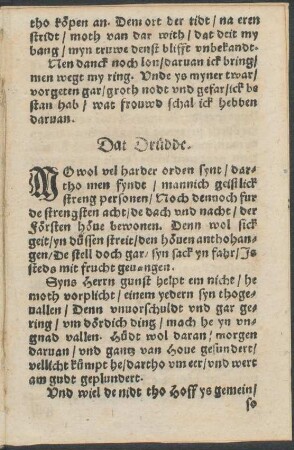 tho köpen an. Dem ort der tidt / na eren
stridt / moth van dar with / dat deit my
bang / myn truwe denst blifft vnbekandt.
Nen danck noch lon / daruan ick bring /
men wegt my ring. Vnde ys myner twar /
vorgeten gar / groth nodt vnd gefar / ick be
stan hab / wat frouwd schal ick hebben
daruan.
Dat Drüdde.
WO wol vel harder orden synt / dar-
tho men fyndt / mannich geistlick
streng personen / Noch dennoch fur
de strengsten acht / de dach vnd nacht / der
Försten höue bewonen. Denn wol sick
geit / yn düssen streit / den höuen anthohan-
gen / De stell doch gar / syn sack yn fahr / Is
steds mit frucht geuangen.
Syns Herrn gunst helpt em nicht / he
moth vorplicht / einem yedern syn thoge-
uallen / Denn vnuorschuldt vnd gar ge-
ring / vm dördich ding / mach he yn vn-
gnad vallen. Hüdt wol daran / morgen
daruan / vnd gantz van Houe gesundert /
vellicht kümpt he / dartho vm eer / vnd wert
am gudt geplundert.
Vnd wiel de nidt tho Hoff ys gemein /
so